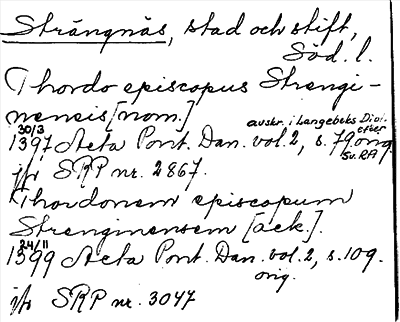 Strängnäs, stad och stift,
Söd. l.
Thordo episcopus Strengi-
nensis [nom.]
avskr. i Langebeks Dipl.
30/3 efter
1397 Acta Pont. Dan. vol. 2, s. 79 orig.
Sv. RA
jfr SRP nr. 2867.
Thordonem episcopum
Strenginensem [ack.].
24/11
1399 Acta Pont. Dan. vol. 2, s. 109.
orig.
jfr SRP nr. 3047